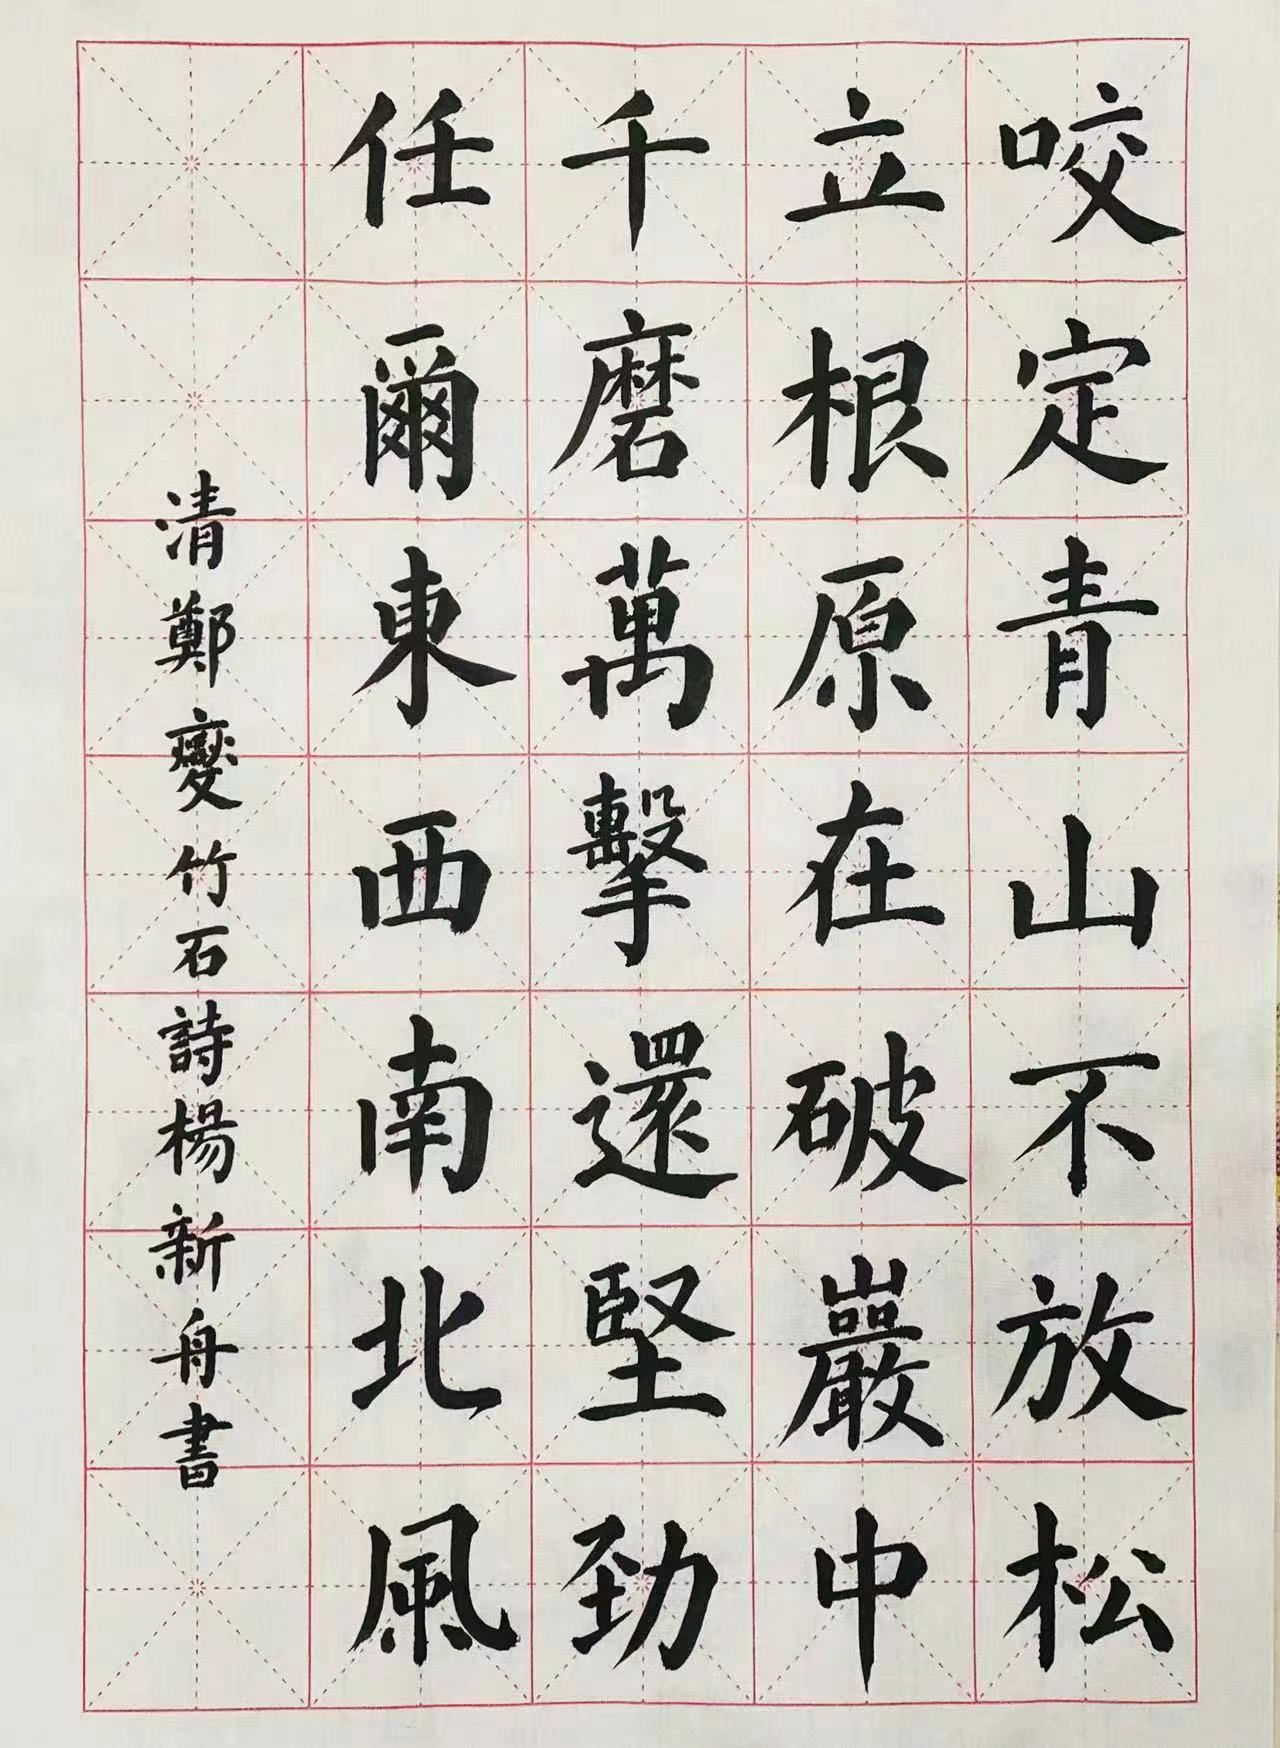 咬定青山不放松
立根原在破巖中
千磨萬擊還堅勁
任爾東西南北風
清鄭燮竹石詩楊新舟書